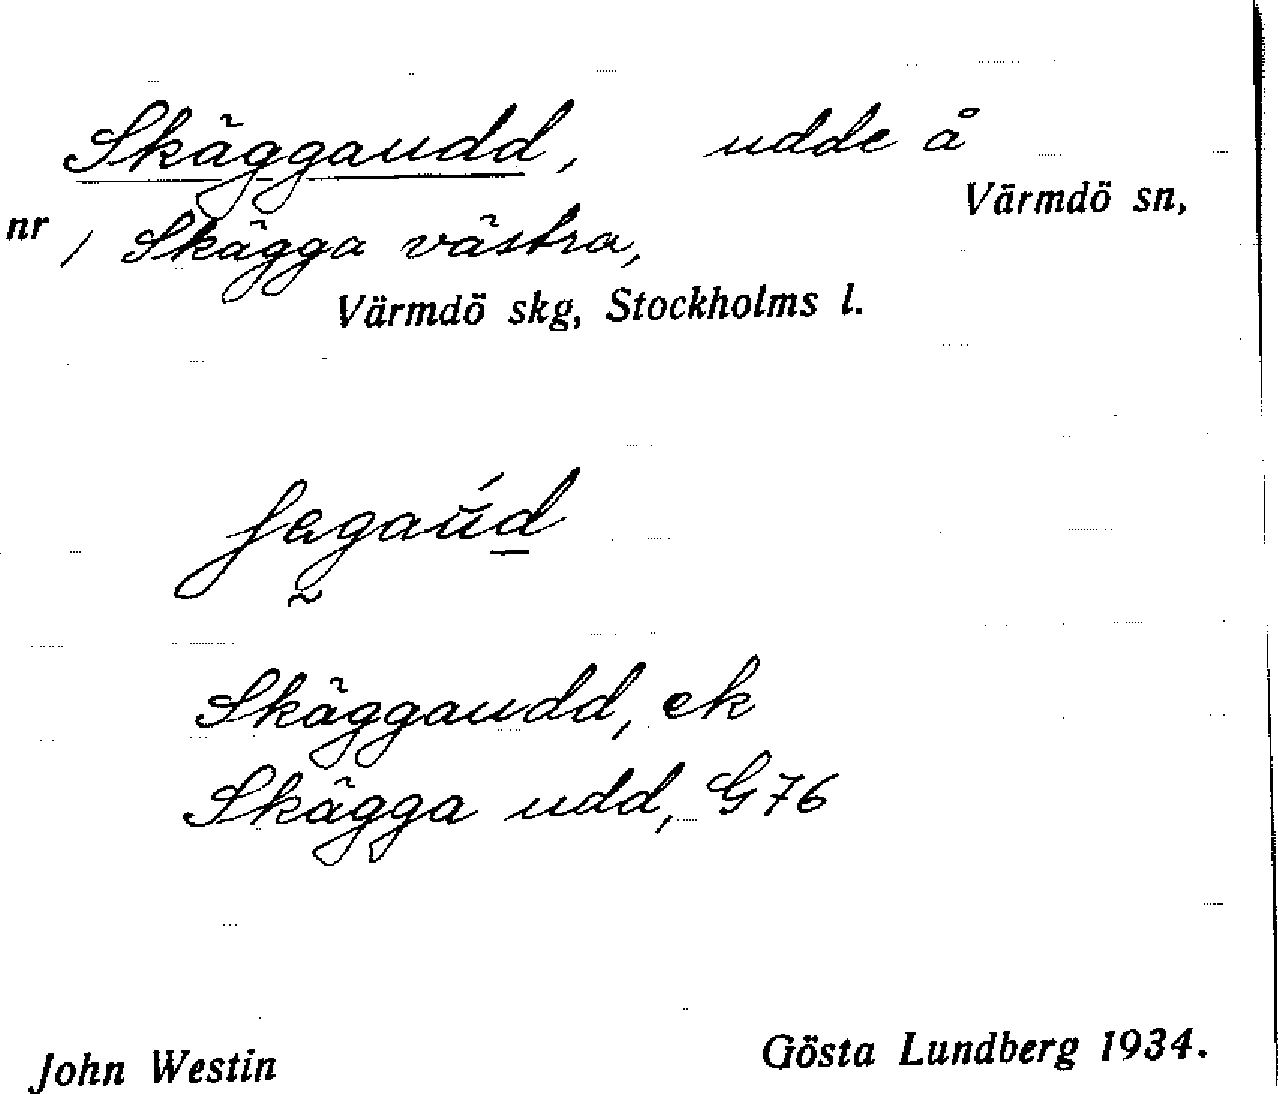 Skäggaudd, udde å
Värmdö sn,
nr / Skägga västra,
Värmdö skg, Stockholms l.
Skäggaudd, ek
Skägga udd, G 76
John Westin
Gösta Lundberg 1934.